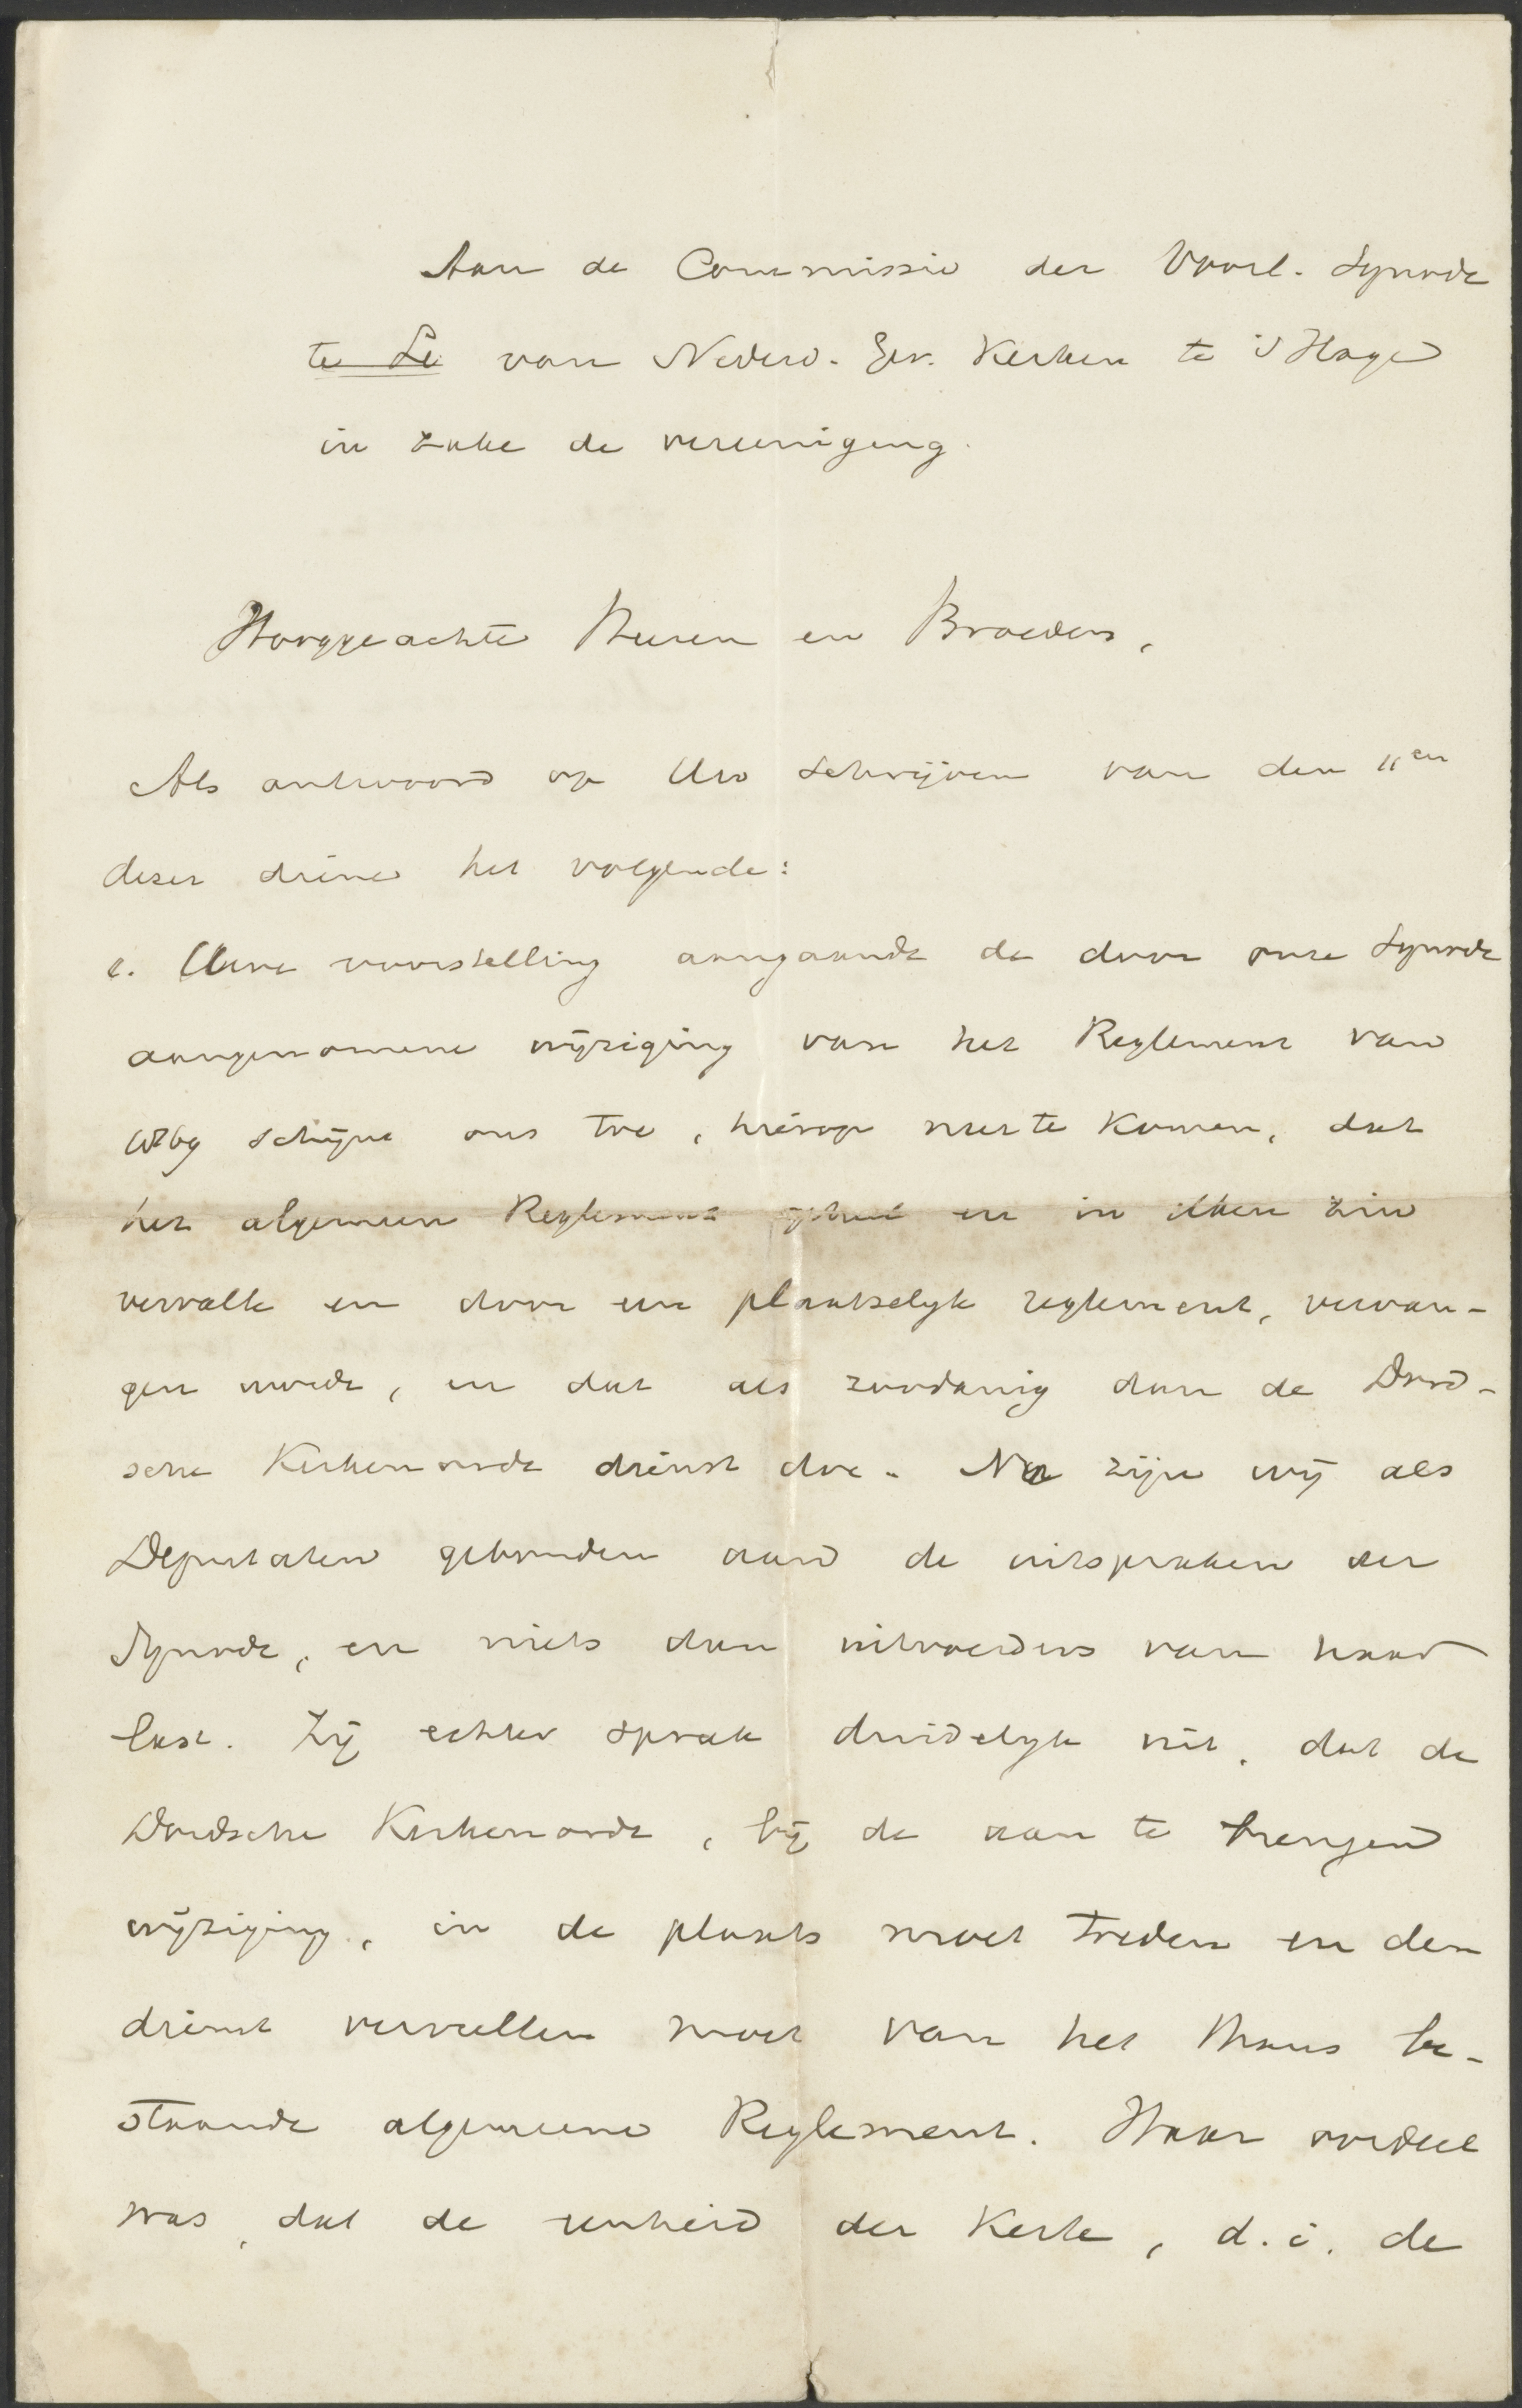 Aan de Commissie der Voorl. Synode
te Le van Nederd. Ger. Kerken te 's Hage
in zake de vereeniging.
Hooggeachte Heeren en Broeders,
Als antwoord op Uw schrijven van den 11en
dezer diene het volgende:
1. Uwe voorstelling aangaande de door onze Synode
aangenomene wijziging van het Reglement van
1869 schijnt ons toe, hierop neer te komen, dat
het algemeen Reglement geheel en in elken zin
vervalle en door een plaatselijk reglement, vervan-
gen worde, en dat als zoodanig dan de Dord-
sche Kerkenorde dienst doe. Nu zijn wij als
Deputaten gebonden aan de uitspraken der
Synode, en niets dan uitvoerders van haar
last. Zij echter sprak duidelijk uit, dat de
Dordsche Kerkenorde, bij de aan te brengen
wijziging, in de plaats moet treden en den
dienst vervullen moet van het thans be-
staande algemeene Reglement. Haar oordeel
was, dat de eenheid der Kerk, d.i. de